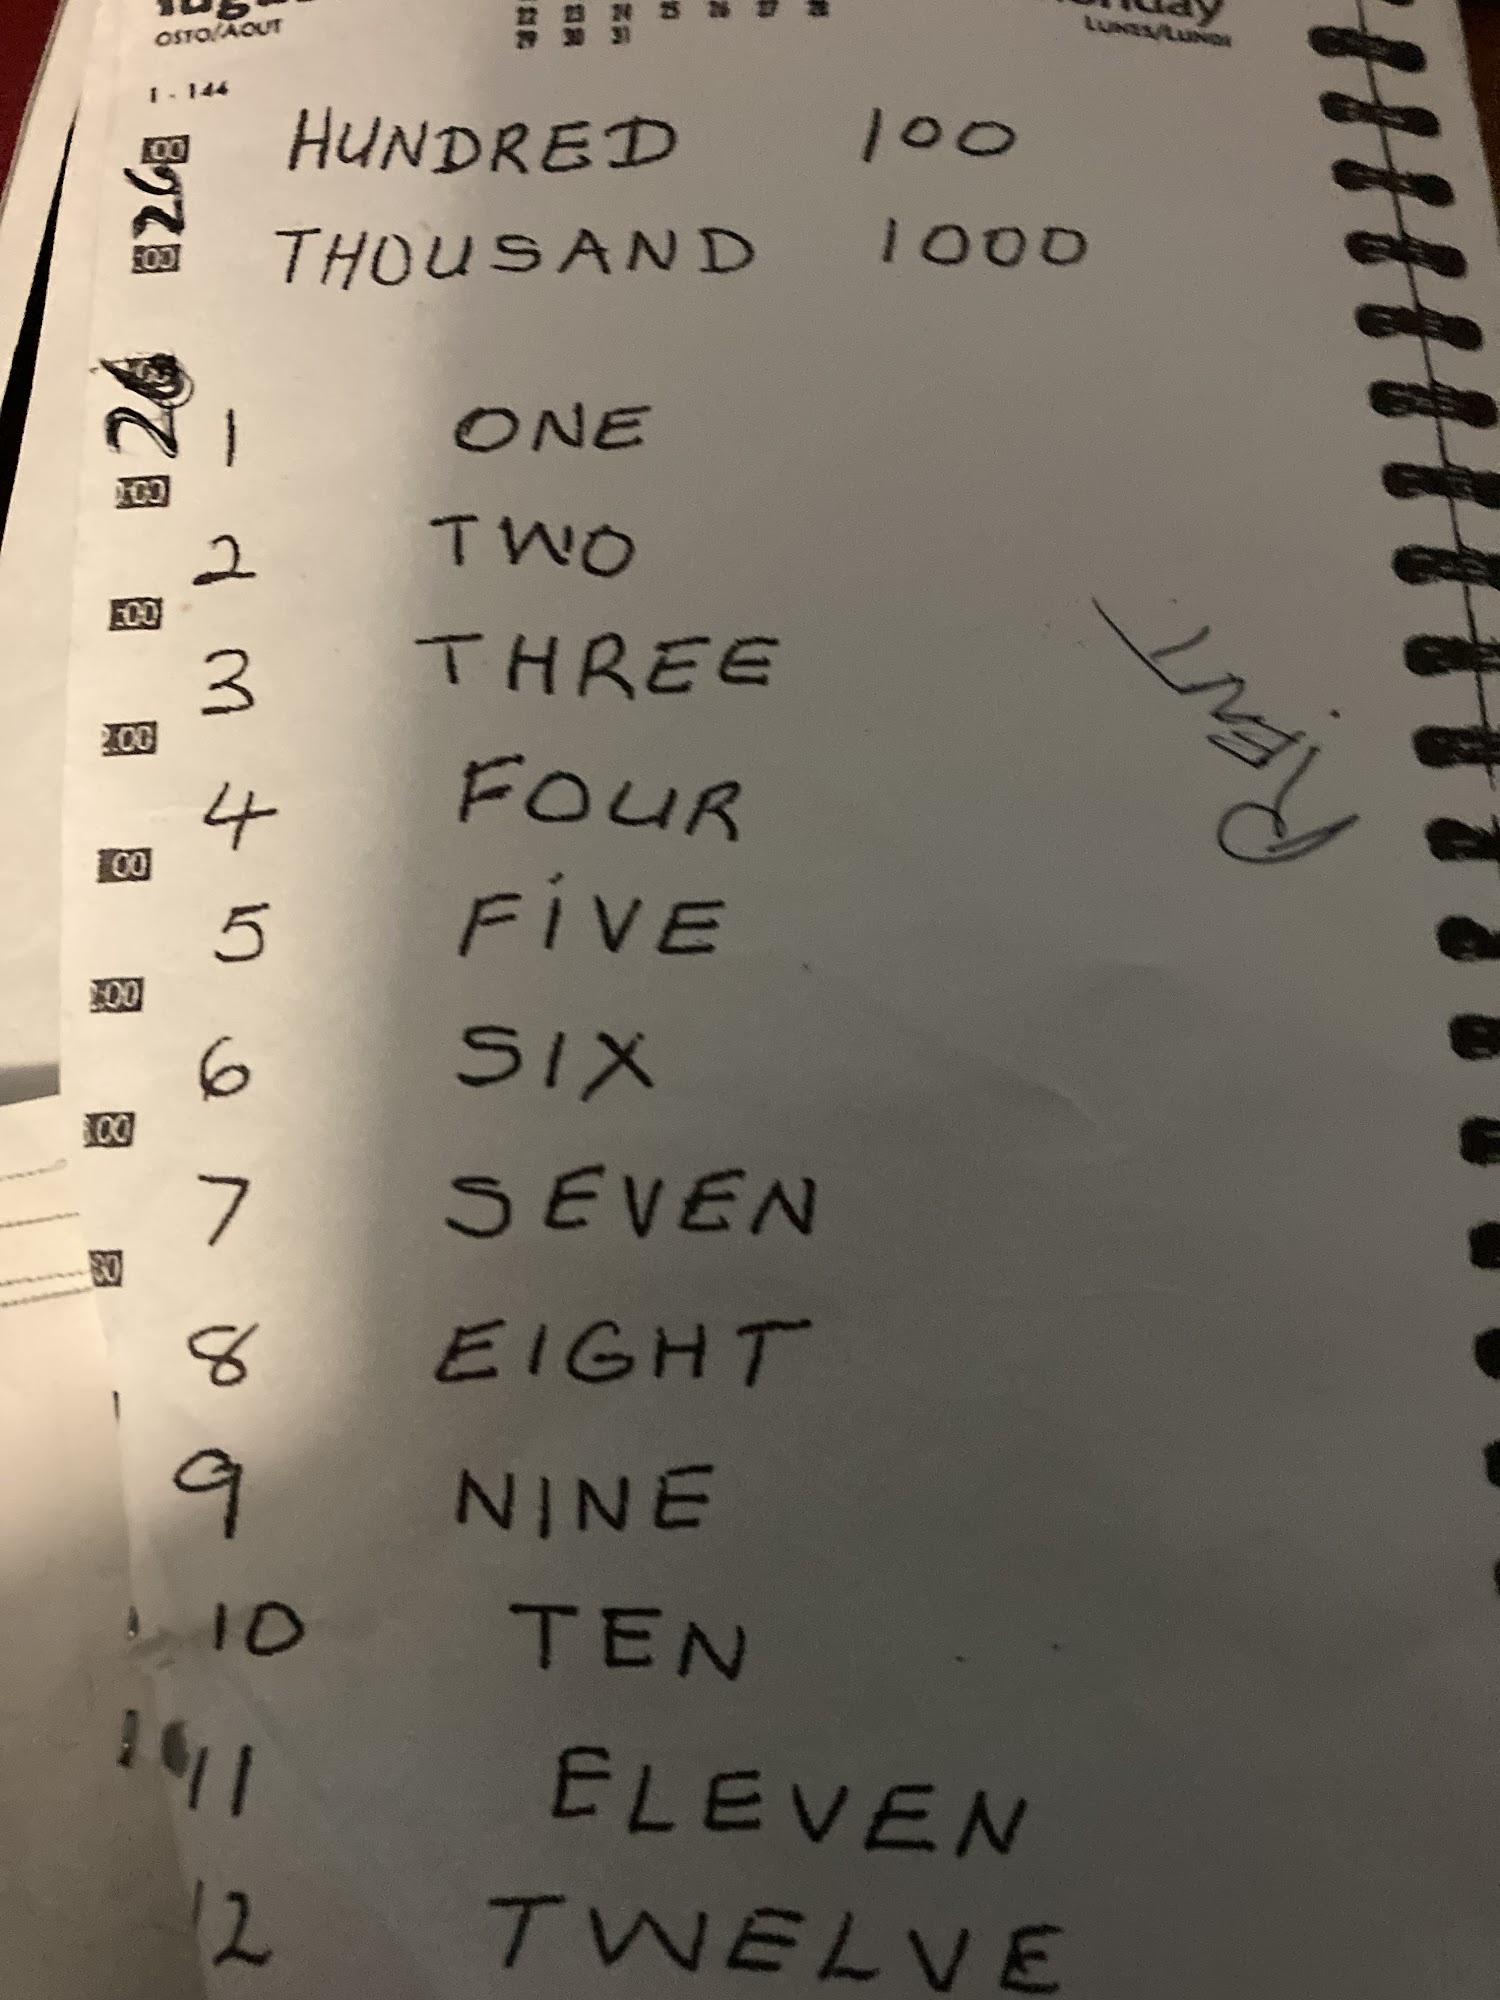 OSTO/AOUT
22 23 24 25 26 27 28
29 30 31
LUNES/LUNDI
1 - 144
HUNDRED 100
26
THOUSAND 1000
26
1 ONE
2 TWO
3 THREE
4 FOUR
5 FIVE
6 SIX
7 SEVEN
8 EIGHT
9 NINE
10 TEN
11 ELEVEN
12 TWELVE